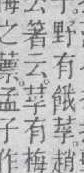 野有餓莩。趙
箸云莩有梅
之蔈。孟子作